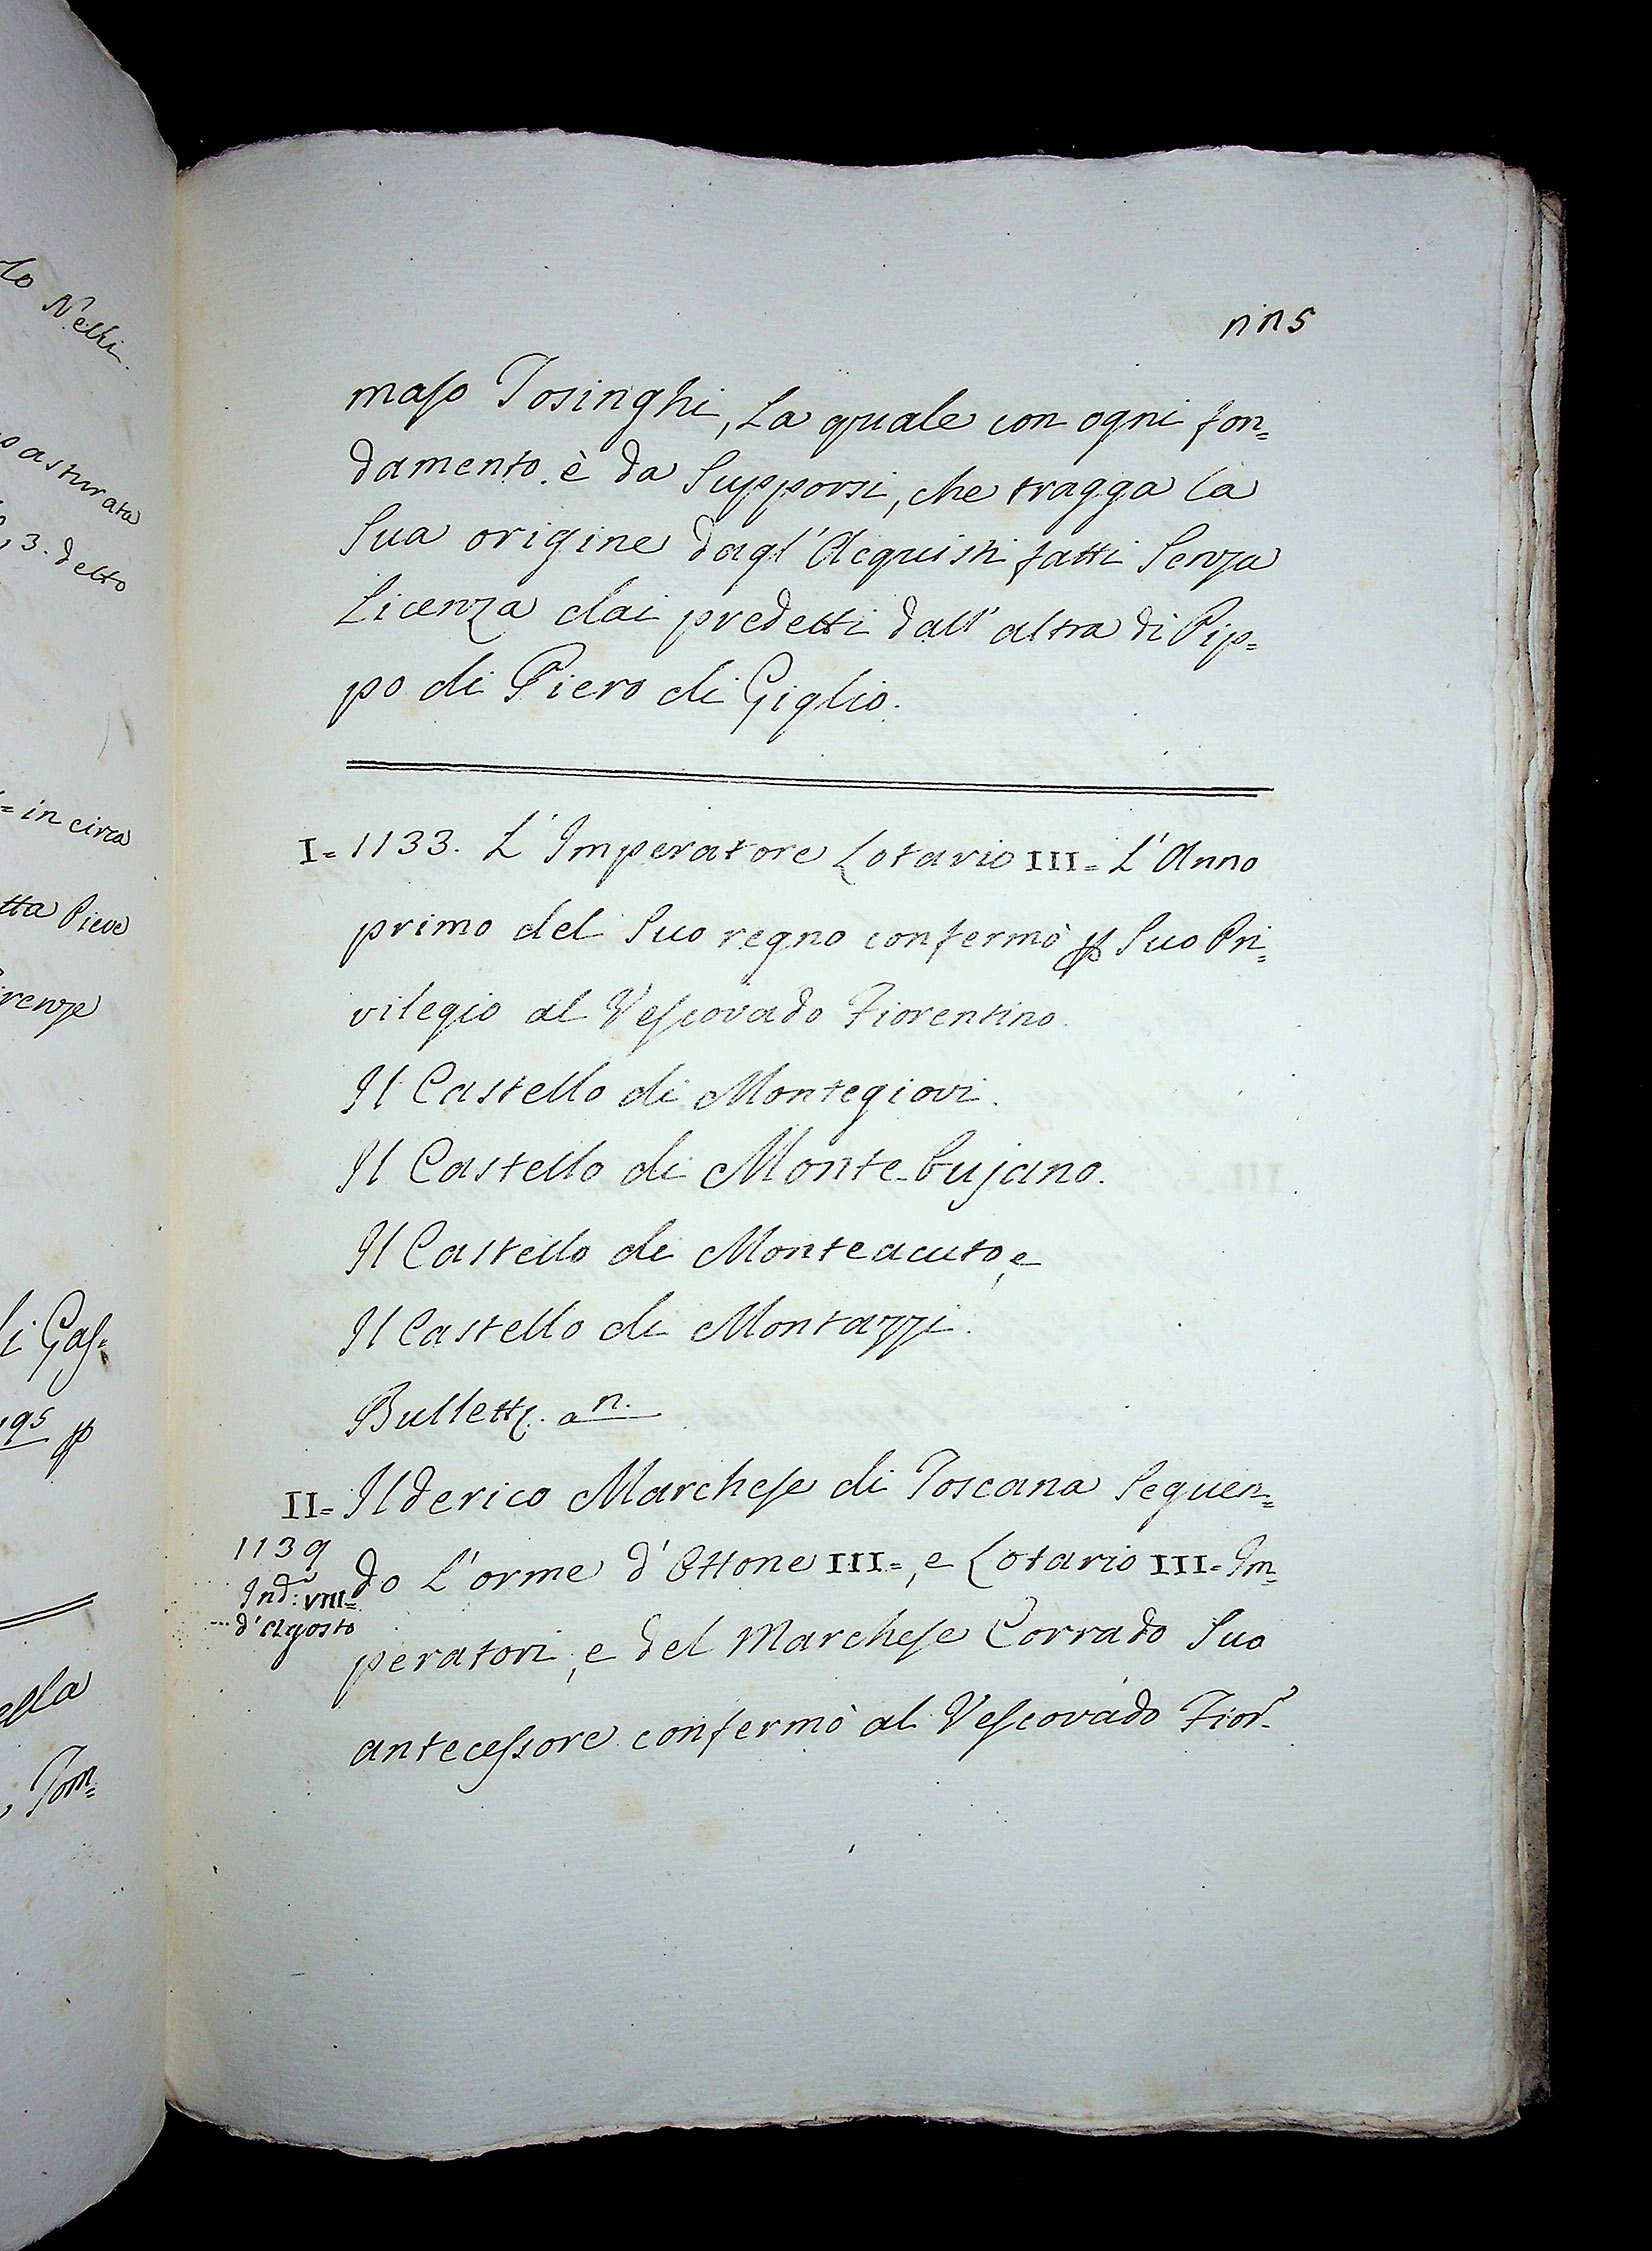 to Nelli.
pasturata
3. detto
= in circa
tta Pieve
irenze
li Gas=
195 ꝑ
ella
, Tom=
115
maso Tosinghi, La quale con ogni fon=
damento è da Supporsi, che tragga la
Sua origine dagl'Acquisti fatti Senza
Licenza dai predetti dall'altra di Pip=
po di Piero di Giglio.
I= 1133. L'Imperatore Lotario III= L'Anno
primo del Suo regno confermò ꝑ Suo Pri=
vilegio al Vescovado Fiorentino.
Il Castello di Montegiovi.
Il Castello di Monte-bujano.
Il Castello di Monteacuto, e
Il Castello di Montazzi.
Bullett. a n.
II= Ilderico Marchese di Toscana Seguen=
1139
do L'orme d'Ottone III=, e Lotario III= Im=
Ind.: VIII=
d'Agosto
peratori, e del Marchese Corrado Suo
antecessore confermò al Vescovado Fior.